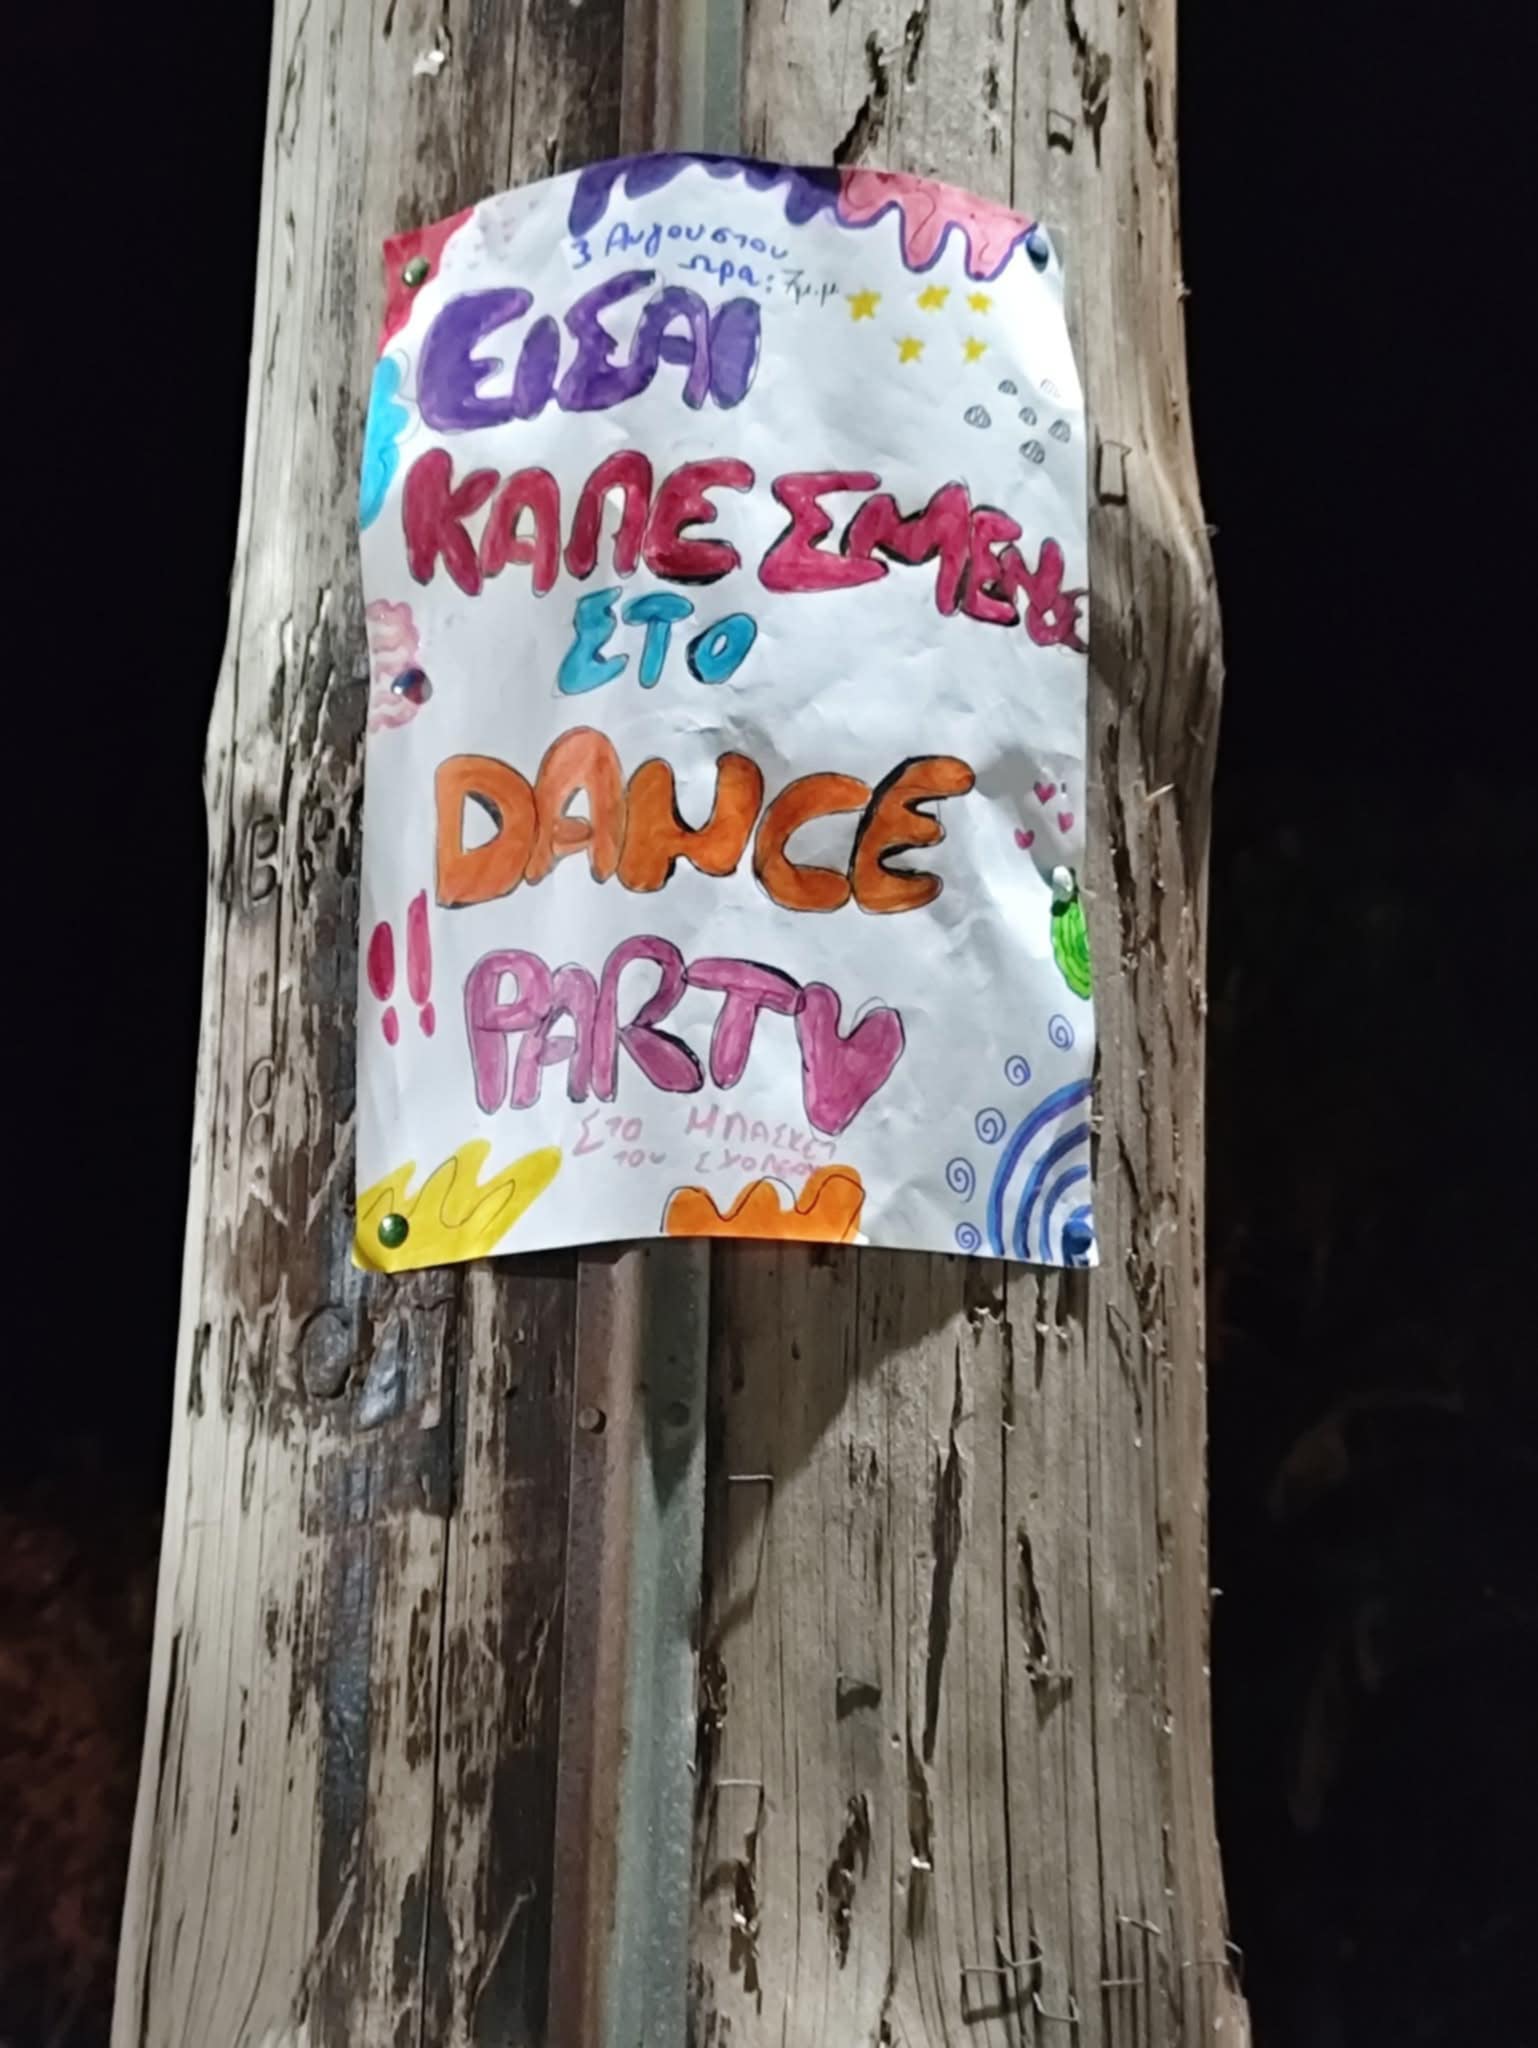 3 Αυγουστου
Ώρα: 7μ.μ
ΕΙΣΑΙ
ΚΑΛΕΣΜΕΝΟΣ
ΣΤΟ
DANCE
PARTY
ΣΤΟ ΜΠΑΣΚΕΤ
ΤΟΥ ΣΧΟΛΕΙΟΥ